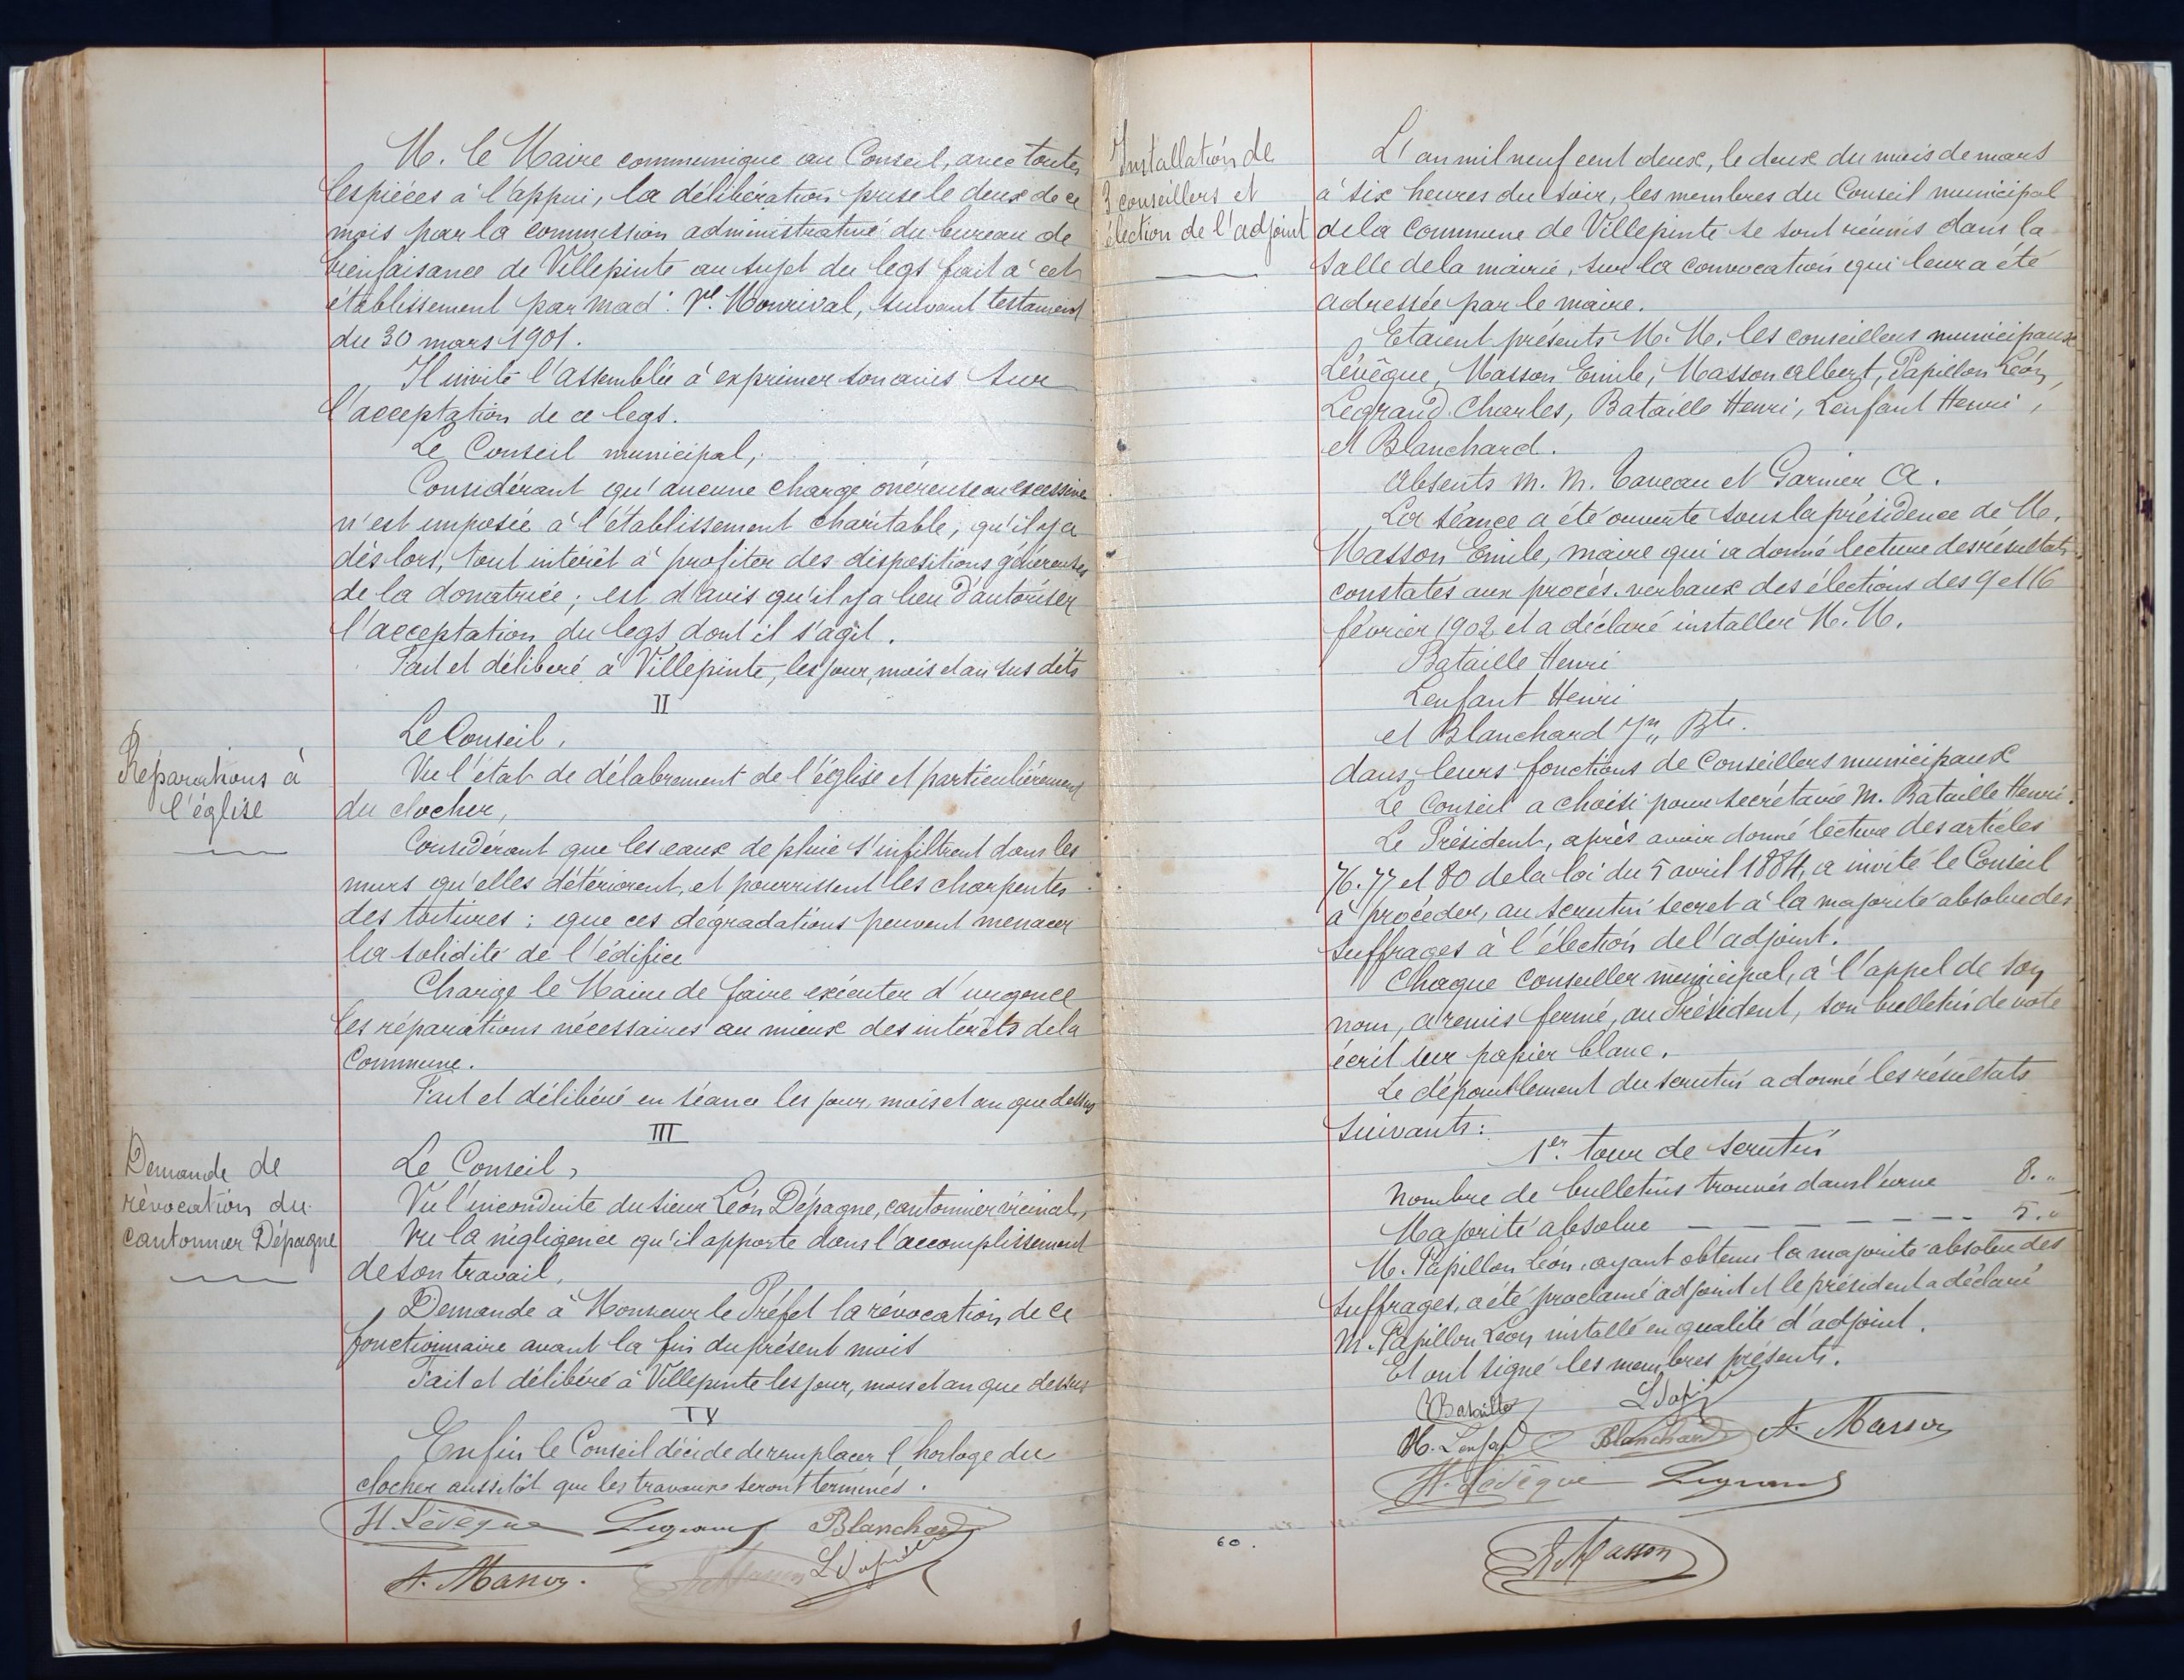 M. le Maire communique au Conseil, avec toutes
les pièces à l'appui, la délibération prise le deux de ce
mois par la commission administrative du bureau de
bienfaisance de Villepinte au sujet du legs fait à cet
établissement par mad. Vve Monrival, suivant testament
du 30 mars 1901.
Il invite l'assemblée à exprimer son avis sur
l'acceptation de ce legs.
Le Conseil municipal,
Considérant qu'aucune charge onéreuse ou excessive
n'est imposée à l'établissement charitable, qu'il y a
dès lors, tout intérêt à profiter des dispositions généreuses
de la donatrice ; est d'avis qu'il y a lieu d'autoriser
l'acceptation du legs dont il s'agit.
Fait et délibéré à Villepinte, les jour, mois et an sus dits
II
Réparations à
l'église
Le Conseil,
Vu l'état de délabrement de l'église et particulièrement
du clocher,
Considérant que les eaux de pluie s'infiltrent dans les
murs qu'elles détériorent, et pourrissent les charpentes
des toitures ; que ces dégradations peuvent menacer
la solidité de l'édifice
Charge le Maire de faire exécuter d'urgence
les réparations nécessaires au mieux des intérêts de la
Commune.
Fait et délibéré en séance les jour, mois et an que dessus
III
Demande de
révocation du
cantonnier Dépagne
Le Conseil,
Vu l'inconduite du sieur Léon Dépagne, cantonnier vicinal,
Vu la négligence qu'il apporte dans l'accomplissement
de son travail,
Demande à Monsieur le Préfet la révocation de ce
fonctionnaire avant la fin du présent mois
Fait et délibéré à Villepinte les jour, mois et an que dessus
IV
Enfin le Conseil décide de remplacer l'horloge du
clocher aussitôt que les travaux seront terminés.
H. Lévêque Legrand Blanchard
A. Masson. E. Masson L. Papillon
Installation de
3 conseillers et
élection de l'adjoint
L'an mil neuf cent deux, le deux du mois de mars
à six heures du soir, les membres du Conseil municipal
de la Commune de Villepinte se sont réunis dans la
salle de la mairie, sur la convocation qui leur a été
adressée par le maire.
Etaient présents M. M. les conseillers municipaux
Lévêque, Masson Emile, Masson Albert, Papillon Léon,
Legrand Charles, Bataille Henri, Lenfant Henri,
et Blanchard.
Absents M. M. Taveau et Garnier A.
La séance a été ouverte sous la présidence de M.
Masson Emile, maire qui a donné lecture des résultats
constatés aux procès-verbaux des élections des 9 et 16
février 1902 et a déclaré installer M. M.
Bataille Henri
Lenfant Henri
et Blanchard Jn Bte.
dans leurs fonctions de Conseillers municipaux
Le Conseil a choisi pour secrétaire M. Bataille Henri.
Le Président, après avoir donné lecture des articles
76. 77 et 80 de la loi du 5 avril 1884, a invité le Conseil
à procéder, au scrutin secret à la majorité absolue des
suffrages à l'élection de l'adjoint.
Chaque conseiller municipal, à l'appel de son
nom, a remis fermé, au Président, son bulletin de vote
écrit sur papier blanc.
Le dépouillement du scrutin a donné les résultats
suivants :
1er tour de scrutin
Nombre de bulletins trouvés dans l'urne 8. "
Majorité absolue — — — — — — 5. "
M. Papillon Léon, ayant obtenu la majorité absolue des
suffrages, a été proclamé adjoint et le président a déclaré
M. Papillon Léon installé en qualité d'adjoint.
Et ont signé les membres présents.
Bataille L. Papillon
H. Lenfant Blanchard A. Masson
H. Lévêque Legrand
60.
E. Masson